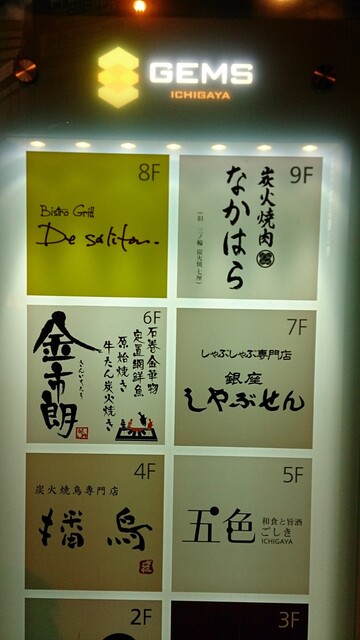 GEMS
ICHIGAYA
8F
Bistro Grill
De salita.
9F
炭火焼肉
なかはら
6F
石巻金華物
定置網鮮魚
原始焼き
牛たん炭火焼き
金市朗
きんいちろう
7F
しゃぶしゃぶ専門店
銀座
しやぶせん
4F
炭火焼鳥専門店
播鳥
5F
五色
和食と旨酒
ごしき
ICHIGAYA
2F
3F